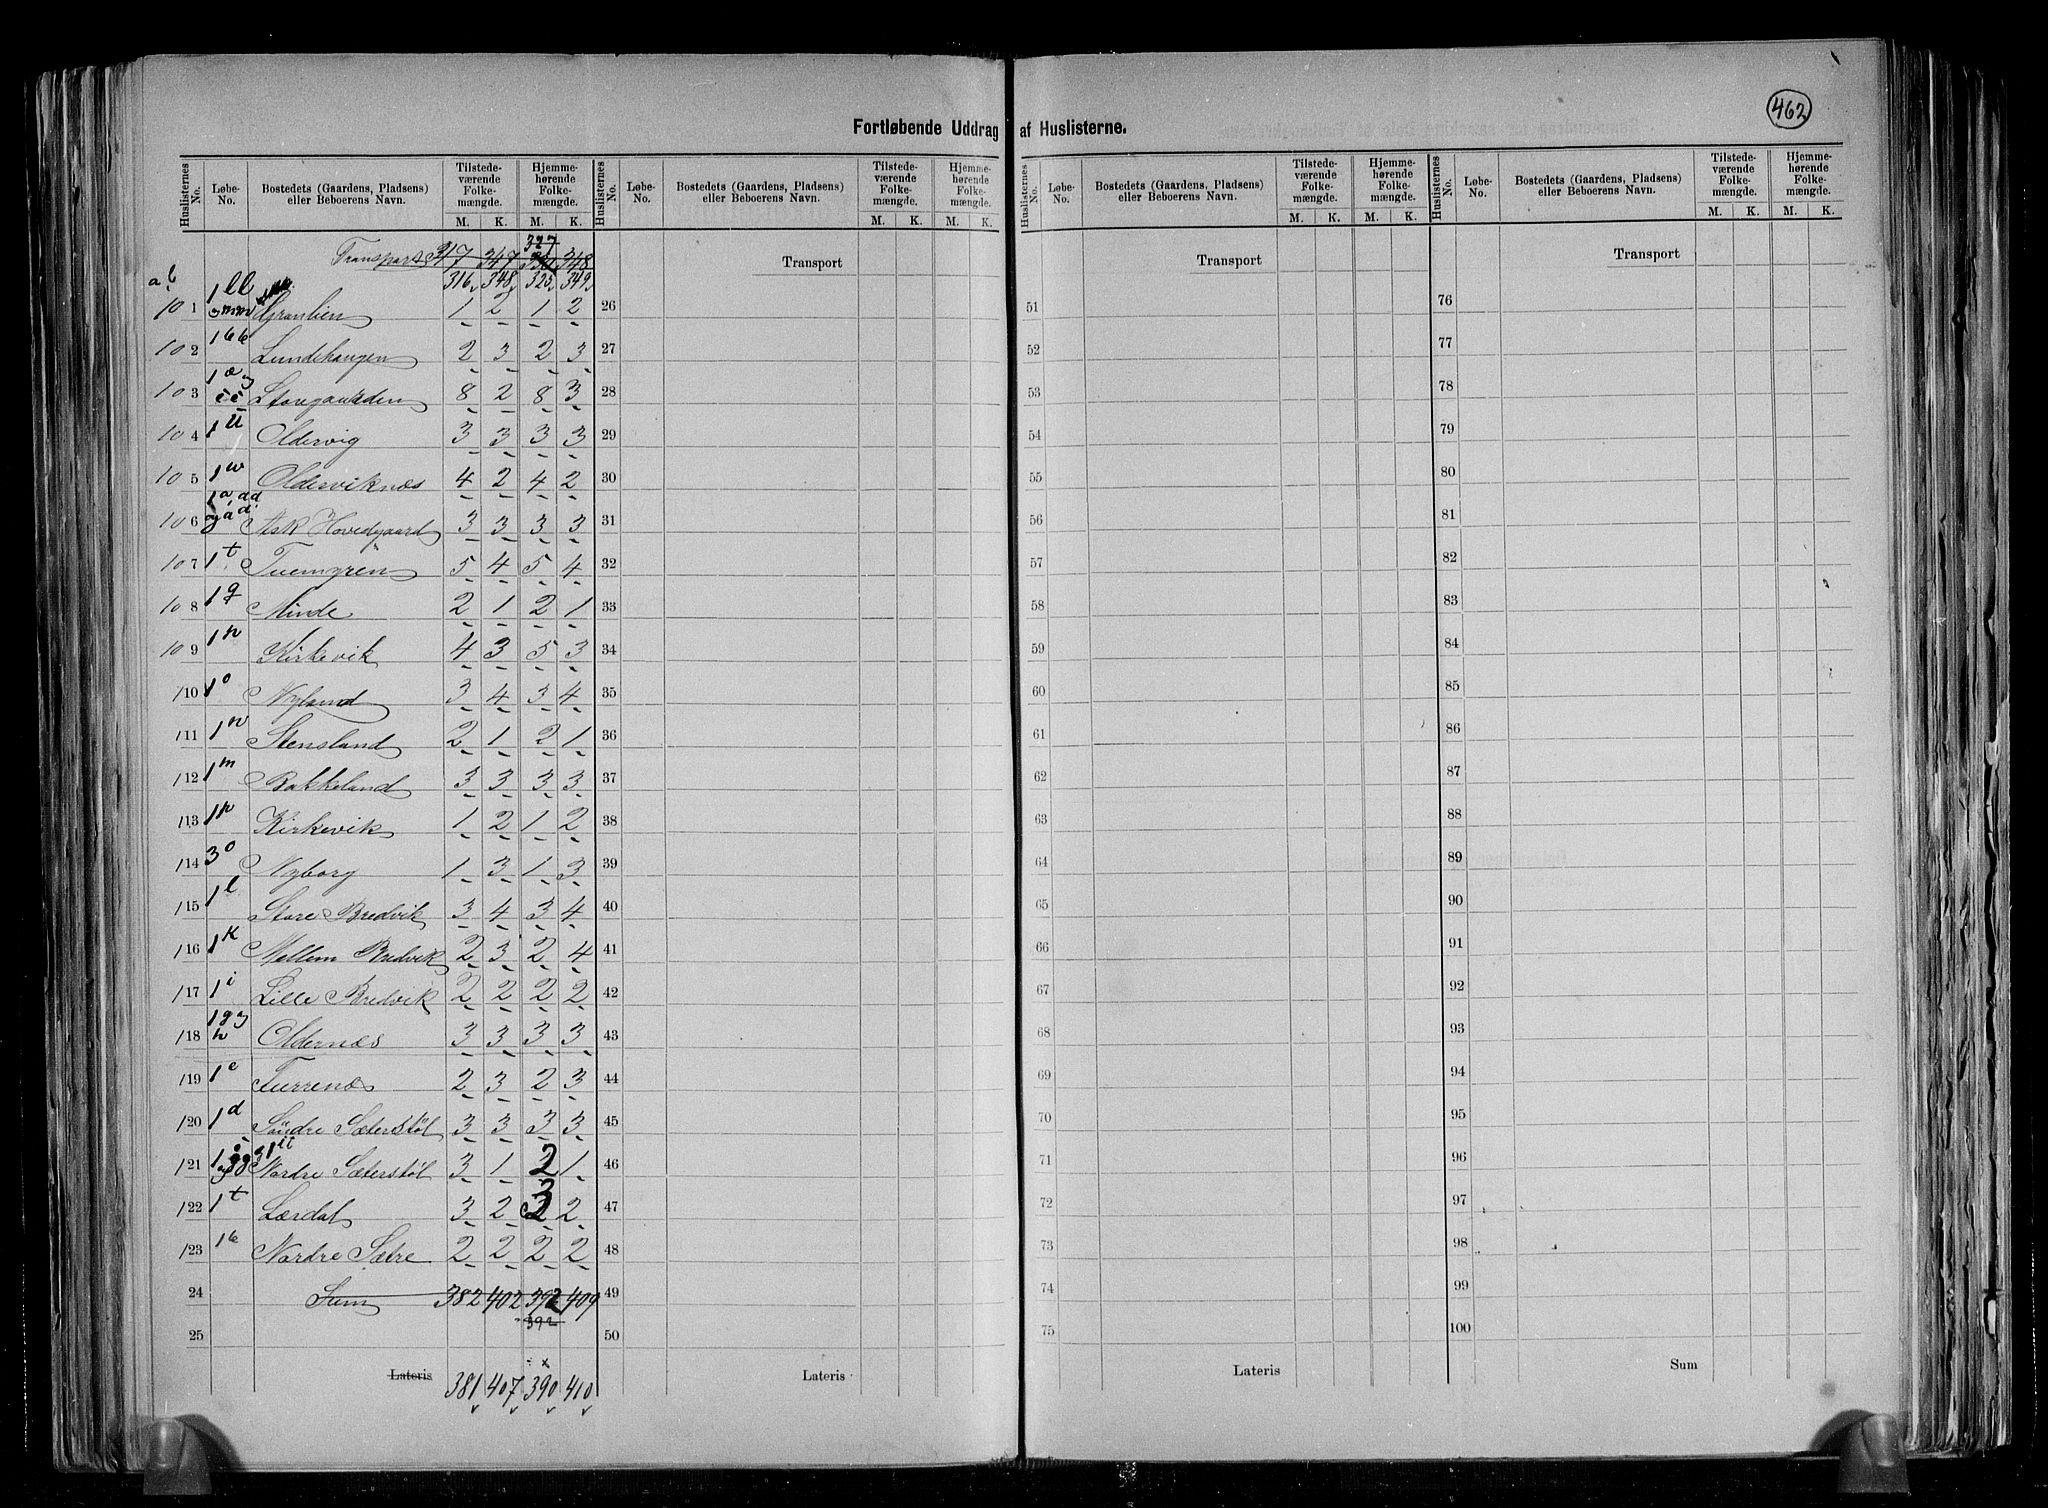 462
Fortløbende Uddrag af Huslisterne.
Huslisternes No. Løbe-No. Bostedets (Gaardens, Pladsens) eller Beboerens Navn. Tilstede-værende Folke-mængde. M. K. Hjemme-hørende Folke-mængde. M. K.
Huslisternes No. Løbe-No. Bostedets (Gaardens, Pladsens) eller Beboerens Navn. Tilstede-værende Folke-mængde. M. K. Hjemme-hørende Folke-mængde. M. K.
Huslisternes No. Løbe-No. Bostedets (Gaardens, Pladsens) eller Beboerens Navn. Tilstede-værende Folke-mængde. M. K. Hjemme-hørende Folke-mængde. M. K.
Huslisternes No. Løbe-No. Bostedets (Gaardens, Pladsens) eller Beboerens Navn. Tilstede-værende Folke-mængde. M. K. Hjemme-hørende Folke-mængde. M. K.
327
Transport 317 347 348
316 348 325 349
a b
10 1 1 ll mm Granlien 1 2 1 2
10 2 1 bb Lundehaugen 2 3 2 3
10 3 1 æ og cc Storgaarden 8 2 8 3
10 4 1 u Oldervig 3 3 3 3
10 5 1 w Olderviknæs 4 2 4 2
10 6 1 a, dd og á d Ask Hovedgaard 3 3 3 3
10 7 1 t Tuemyren 5 4 5 4
10 8 1 q Minde 2 1 2 1
10 9 1 p Kirkevik 4 3 5 3
1 10 1 o Nyland 3 4 3 4
1 11 1 n Stensland 2 1 2 1
1 12 1 m Bakkeland 3 3 3 3
1 13 1 p Kirkevik 1 2 1 2
1 14 3 o Nyborg 1 3 1 3
1 15 1 l Store Bredvik 3 4 3 4
1 16 1 k Mellem Bredvik 2 3 2 4
1 17 1 i Lille Bredvik 2 2 2 2
1 18 1 g og h Oldernæs 3 3 3 3
1 19 1 e Furrenæs 2 3 2 3
1 20 1 d Söndre Sæterstöl 3 3 3 3
1 21 Nordre Sæterstöl 3 1 2 1
1 22 1 t Lærdal 3 2 3 2
1 23 1 b Nordre Sætre 2 2 2 2
24 Sum 382 402 392 409
392
25
Lateris 381 407 390 410
26
27
28
29
30
31
32
33
34
35
36
37
38
39
40
41
42
43
44
45
46
47
48
49
50
Transport
Lateris
Transport
51
52
53
54
55
56
57
58
59
60
61
62
63
64
65
66
67
68
69
70
71
72
73
74
75
Lateris
Transport
76
77
78
79
80
81
82
83
84
85
86
87
88
89
90
91
92
93
94
95
96
97
98
99
100
Sum